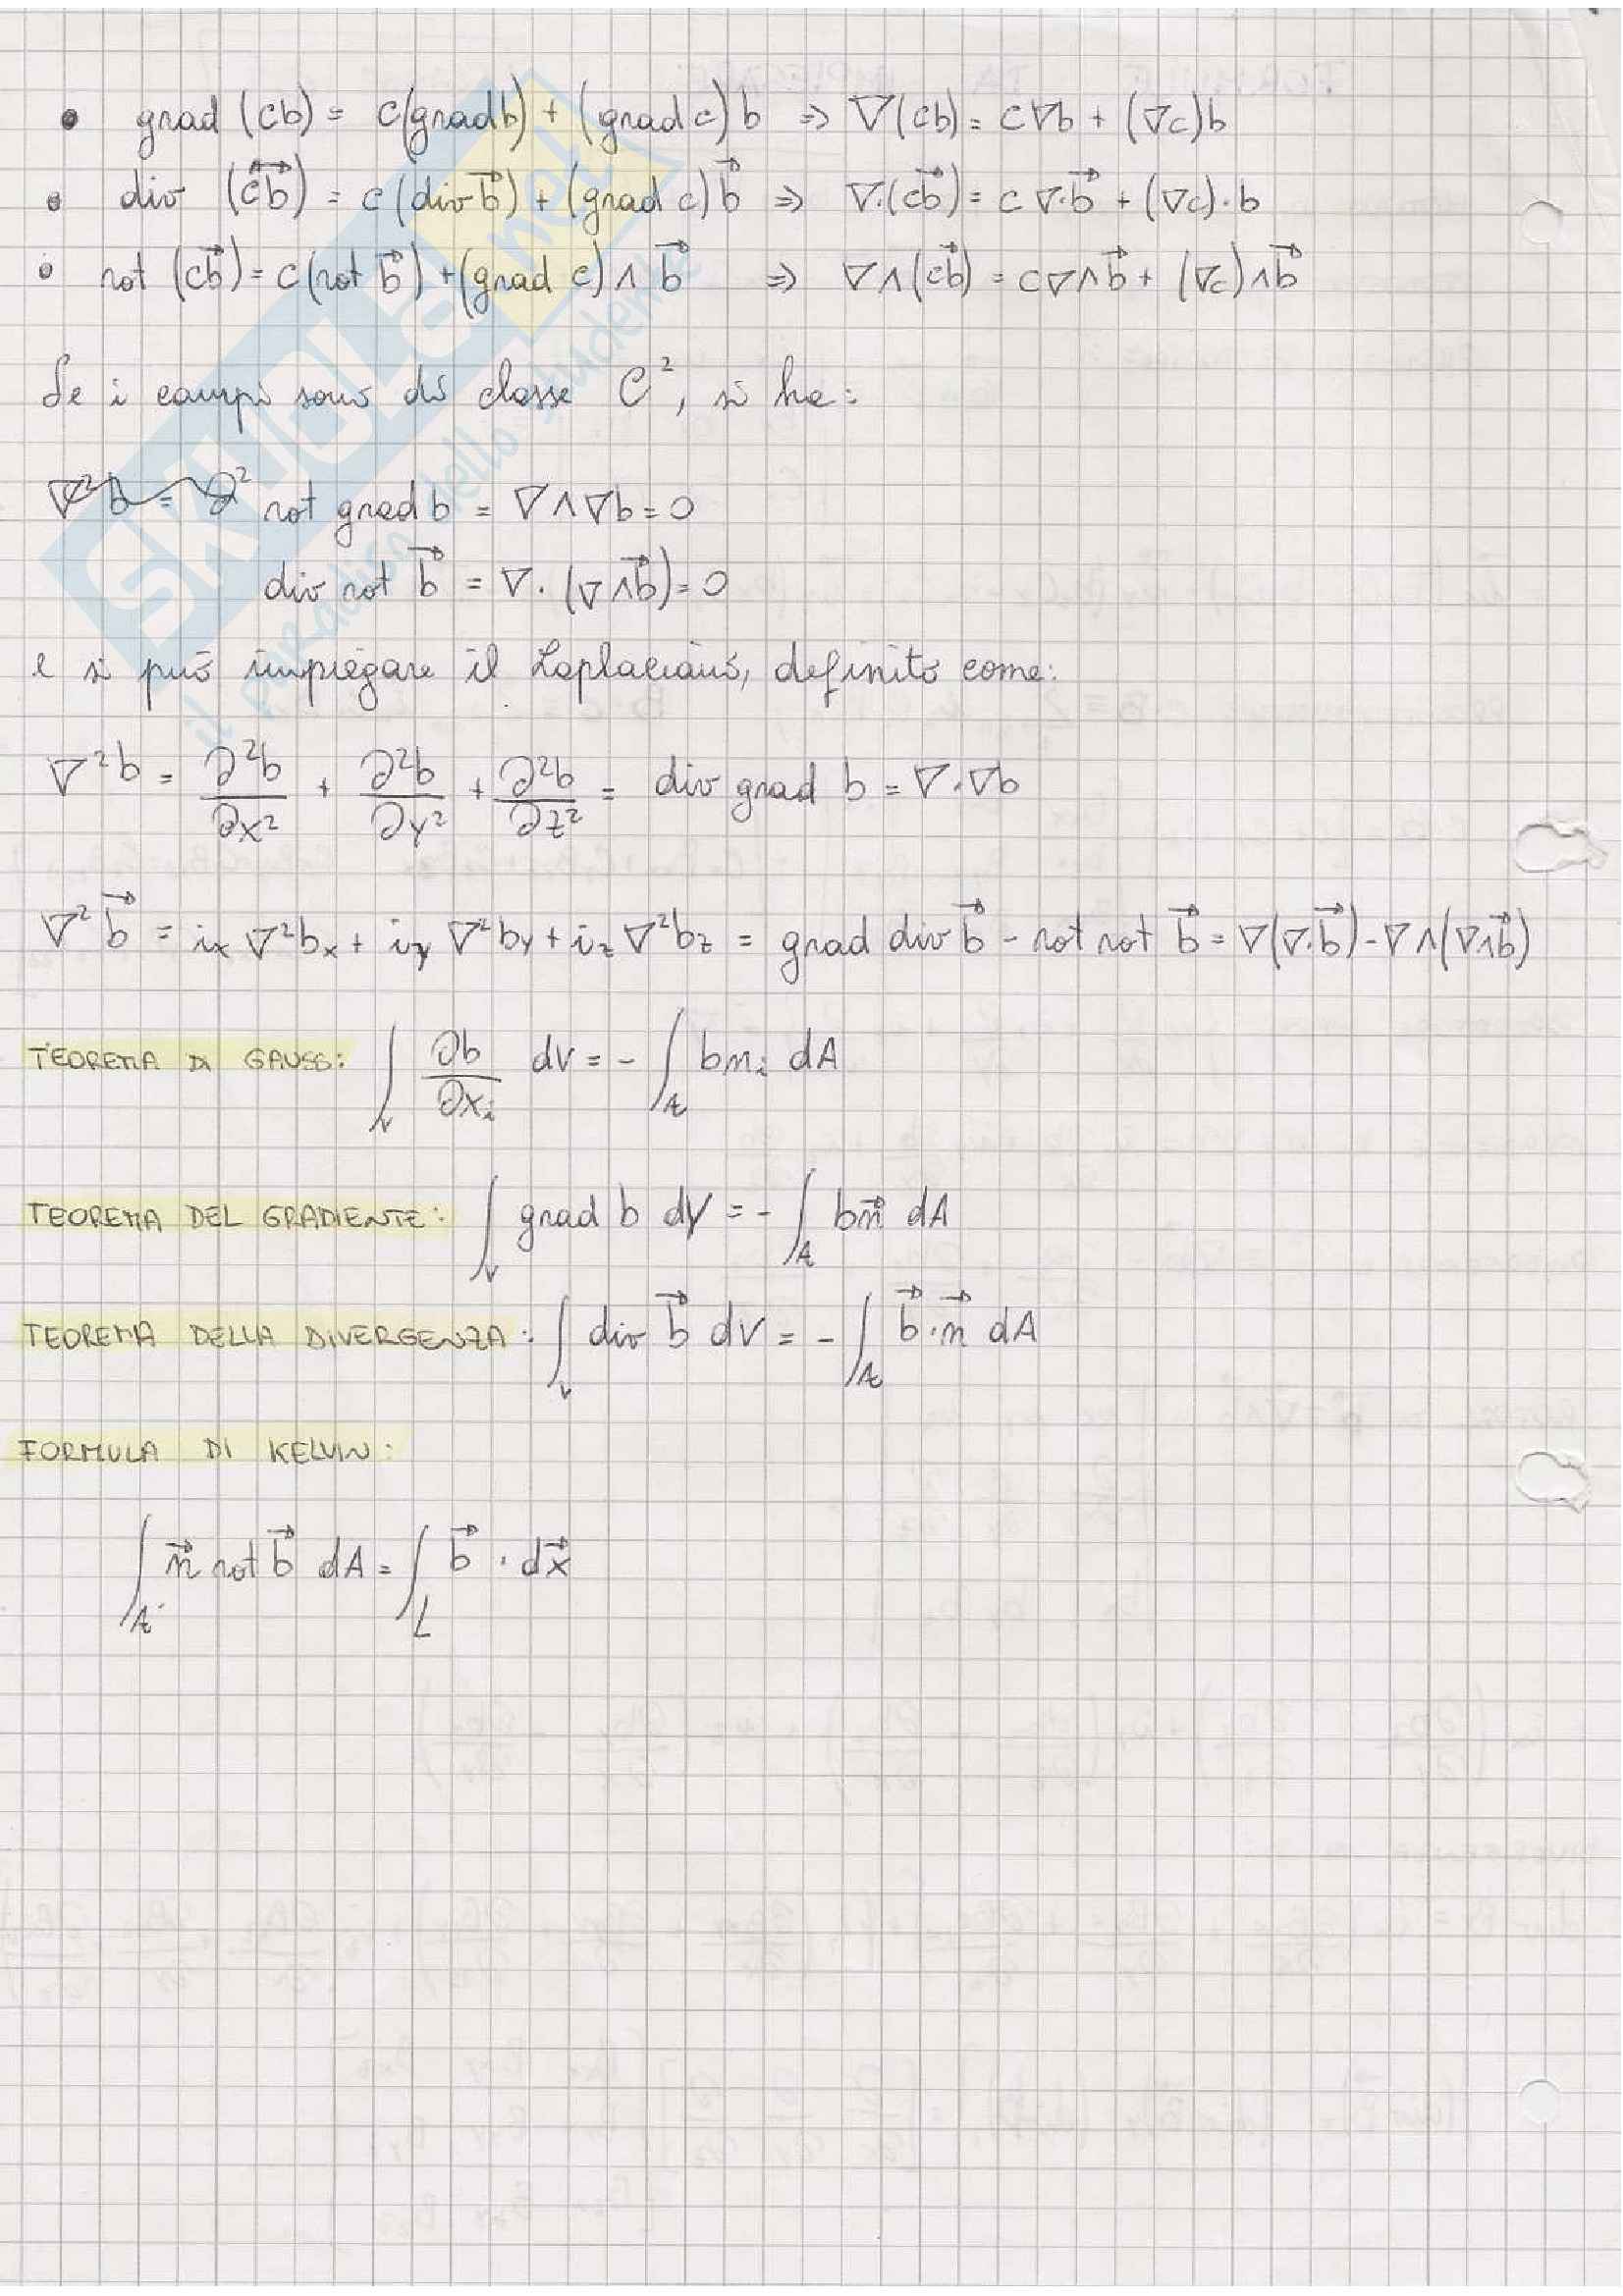 • grad (cb) = c(grad b) + (grad c) b ⇒ ∇(cb) = c∇b + (∇c)b
• div (c⃗b⃗) = c (div b⃗) + (grad c) b⃗ ⇒ ∇·(cb⃗) = c ∇·b⃗ + (∇c)·b
• rot (cb⃗) = c(rot b⃗) + (grad c) ∧ b⃗ ⇒ ∇∧(cb⃗) = c∇∧b⃗ + (∇c)∧b⃗
Se i campi sono di classe C², si ha:
∇²b = ∂² rot grad b = ∇∧∇b = 0
div rot b⃗ = ∇·(∇∧b⃗) = 0
e si può impiegare il Laplaciano, definito come:
∇²b = ∂²b/∂x² + ∂²b/∂y² + ∂²b/∂z² = div grad b = ∇·∇b
∇²b⃗ = ix ∇²bx + iy ∇²by + iz ∇²bz = grad div b⃗ - rot rot b⃗ = ∇(∇·b⃗) - ∇∧(∇∧b⃗)
TEOREMA DI GAUSS: ∫v ∂b/∂xi dV = - ∫A bni dA
TEOREMA DEL GRADIENTE: ∫v grad b dV = - ∫A bn⃗ dA
TEOREMA DELLA DIVERGENZA: ∫v div b⃗ dV = - ∫A b⃗·n⃗ dA
FORMULA DI KELVIN:
∫A n⃗ rot b⃗ dA = ∫L b⃗ · dx⃗
SKUOLA.net
il paradiso dello studente